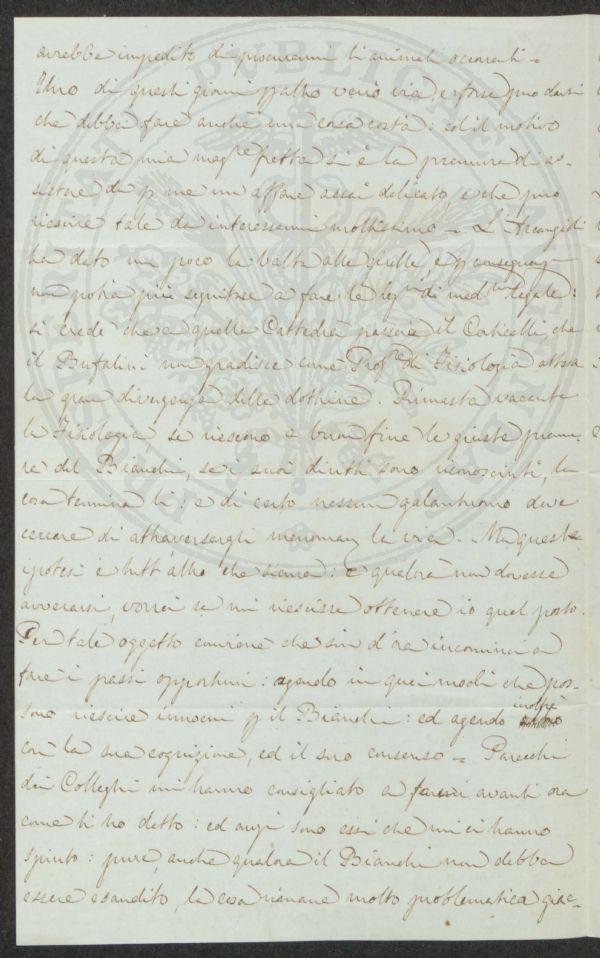 avrebbe impedito di procurarmi li animali occorrenti =
Uno di questi giorni p altro verrò via, e forse può darsi
che debba fare anche una corsa costà: ed il motivo
di questa mia mag.re fretta si è la premura di as-
sicurare di p me un affare assai delicato, e che può
riescire tale da interessarmi moltissimo = L'Arcangioli
ha dato un poco la balta alle girelle, e p conseguenza
non potrà più seguitare a fare le lez.ni di med.na legale:
si crede che a quella Cattedra passerà il Corticelli, che
il Bufalini non gradisce come Prof.e di Fisiologia attesa
la gran divergenza delle dottrine. Rimasta vacante
la Fisiologia, se riescono a buon fine le giuste premu-
re del Bianchi, se i suoi diritti sono riconosciuti, la
cosa termina lì: e di certo nessun galantuomo deve
cercare di attraversargli menomam. la via. Ma questa
ipotesi è tutt'altro che sicura: e qualora non dovesse
avverarsi, vorrei se mi riescisse ottenere io quel posto.
Per tale oggetto conviene che sin d'ora incominci a
fare i passi opportuni: agendo in quei modi che pos-
sono riescire innocui p il Bianchi: ed agendo inoltre
con la sua cognizione, ed il suo consenso = Parecchi
dei Colleghi mi hanno consigliato a farmi avanti ora
come ti ho detto: ed anzi sono essi che mi ci hanno
spinto: pure, anche qualora il Bianchi non debba
essere esaudito, la cosa rimane molto problematica giac-